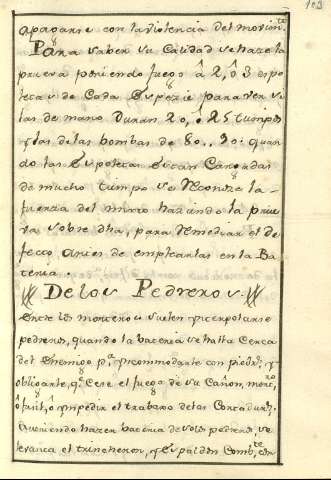 103
apagarse con la violencia del movim.to
Para saver su Calidad se haze la
prueva poniendo fuego â 2, ô 3 espo
letas de Cada Especie para ver si
las de mano Duran 20, ô 25 tiempos
y las de las bombas de 80,, 90: quan
do las Espoletas Estan Cargadas
de mucho tiempo se Reconoze la
fuerza del mixto haciendo la prue
va sobre dha, para Remediar el de
fecto antes de emplearlas en la Ba
teria.
De los Pedreros
Entre los morteros suelen ynterpolarse
pedreros, quando la bateria se halla Cerca
del Enemigo p.a yncommodarle con piedras, y
obligarle, q.e Cese el fuego de su Cañon, morte.ro
ô fusil, ô ympedir el trabajo de las Cortaduras.
Queriendo hazer bateria de solos pedreros, se
levanta el trincheron, y Espaldon